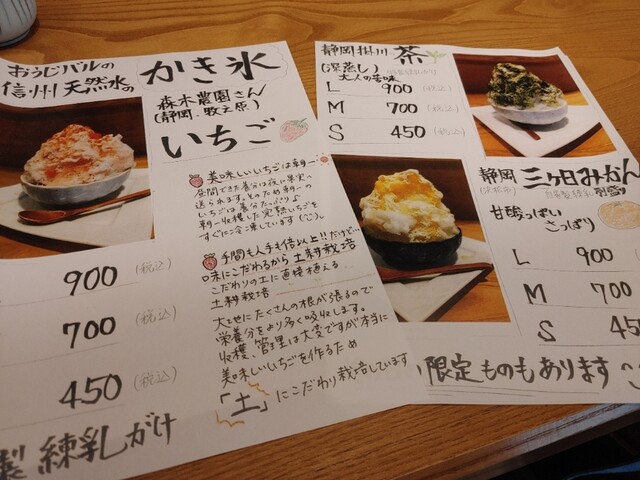 おうじバルの
信州天然水の
かき氷
森木農園さん
(静岡.牧之原)
いちご
美味しいいちごは朝一
昼間できた養分は夜い果実へ
送られます。そのため朝一の
いちごは養分たっぷり♪
朝一収穫した完熟いちごを
すぐに冷凍しています(^^)。
手間も人手も倍以上!!だけど…
味にこだわるから土耕栽培
こだわりの土に直接植える
土耕栽培
大地にたくさんの根が張るので
栄養分をより多く吸収します。
収穫、管理は大変ですが本当に
美味しいいちごを作るため
「土」にこだわり栽培しています
900 (税込)
700 (税込)
450 (税込)
製 練乳がけ
静岡掛川 茶
(深蒸し)
大人の苦味
L 900 (税込)
M 700 (税込)
S 450 (税込)
静岡 三ケ日みかん
(浜松市)
甘酸っぱい
さっぱり
L 900 (税込)
M 700
S 45
限定ものもあります